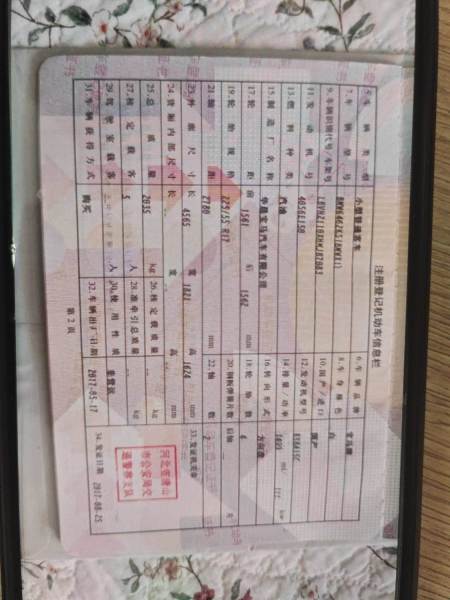 注册登记机动车信息栏
5.车辆类型 小型普通客车 6.车辆品牌 宝马牌
7.车辆型号 8.车身颜色 白
9.车辆识别代号/车架号 10.国产/进口 国产
11.发动机号 12.发动机型号
13.燃料种类 汽油 14.排量/功率 ml kw
15.制造厂名称 华晨宝马汽车有限公司 16.转向形式
17.轮距 前 1561 后 1562 mm 18.轮胎数 4
19.轮胎规格 225/55 R17 20.钢板弹簧片数 后轴 -- 片
21.轴距 2780 mm 22.轴数 2
23.外廓尺寸 长 4565 宽 1821 高 1624 mm 33.发证机关章
24.货厢内部尺寸 长 宽 高 mm
25.总质量 2035 kg 26.核定载质量 -- kg
27.核定载客 5 人 28.准牵引总质量 -- kg
29.驾驶室载客 人 30.使用性质 非营运
31.车辆获得方式 购买 32.车辆出厂日期 2017-05-17 34.发证日期 2017-08-25
河北省唐山
市公安局交
通警察支队
第2页